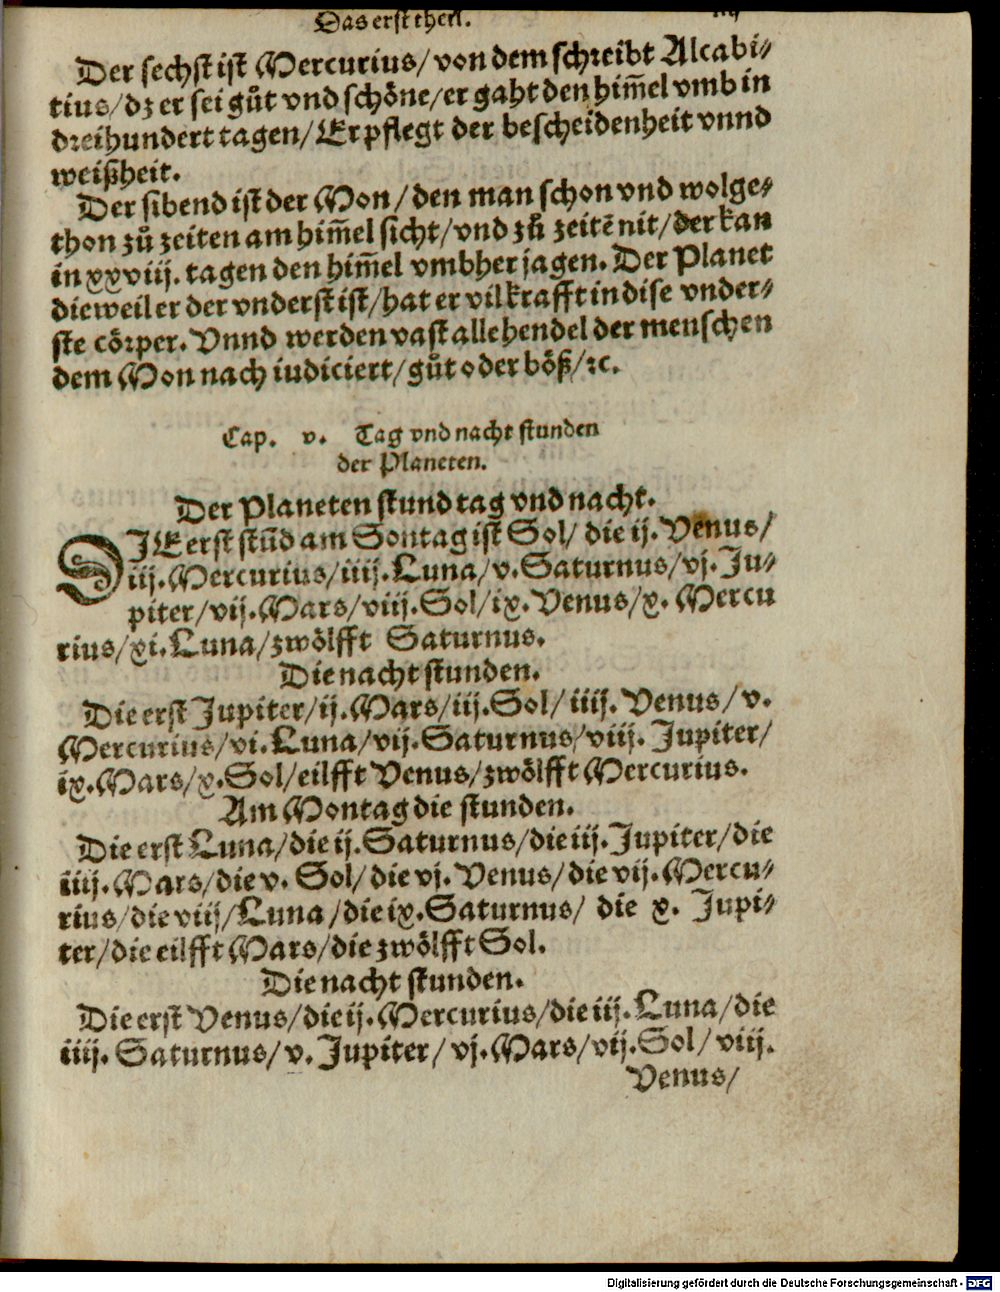 Das erst theil.
Der sechst ist Mercurius/ von dem schreibt Alcabi-
tius/ dz er sei gůt vnd schöne/ er gaht den him̃el vmb in
dreihundert tagen/ Er pflegt der bescheidenheit vnnd
weißheit.
Der sibend ist der Mon/ den man schon vnd wolge-
thon zů zeiten am him̃el sicht/ vnd zů zeitẽ nit/ der kan
in xxviij. tagen den him̃el vmbher jagen. Der Planet
dieweil er der vnderst ist/ hat er vil krafft in dise vnder-
ste cörper. Vnnd werden vast alle hendel der menschen
dem Mon nach iudiciert/ gůt oder böß/ ꝛc.
Cap. v. Tag vnd nacht stunden
der Planeten.
Der Planeten stund tag vnd nacht.
DIE erst stũd am Sontag ist Sol/ die ij. Venus/
iij. Mercurius/ iiij. Luna/ v. Saturnus/ vj. Ju-
piter/ vij. Mars/ viij. Sol/ ix. Venus/ x. Mercu
rius/ xi. Luna/ zwölfft Saturnus.
Die nacht stunden.
Die erst Jupiter/ ij. Mars/ iij. Sol/ iiij. Venus/ v.
Mercurius/ vi. Luna/ vij. Saturnus/ viij. Jupiter/
ix. Mars/ x. Sol/ eilfft Venus/ zwölfft Mercurius.
Am Montag die stunden.
Die erst Luna/ die ij. Saturnus/ die iij. Jupiter/ die
iiij. Mars/ die v. Sol/ die vj. Venus/ die vij. Mercu-
rius/ die viij/ Luna/ die ix. Saturnus/ die x. Jupi-
ter/ die eilfft Mars/ die zwölfft Sol.
Die nacht stunden.
Die erst Venus/ die ij. Mercurius/ die iij. Luna/ die
iiij. Saturnus/ v. Jupiter/ vj. Mars/ vij. Sol/ viij.
Venus/
Digitalisierung gefördert durch die Deutsche Forschungsgemeinschaft - DFG